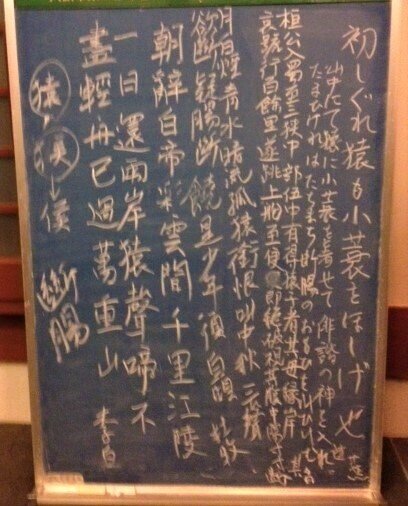 初しぐれ猿も小蓑をほしげ也 芭蕉
山中にて猿に小蓑を着せて俳諧の神を入れ
たまひければたちまち断腸のおもひを叫びけむ
桓公入蜀至三峡中部伍中有得猿子者其母縁岸
哀號行百餘里遂跳上船至便即絶破視其腹中腸皆寸寸断
月白煙青水暗流孤猿銜恨叫中秋 三聲
欲斷疑腸断饒是少年須白頭 杜牧
朝辭白帝彩雲間千里江陵
一日還兩岸猿聲啼不
盡輕舟已過萬重山 李白
猿 斷腸